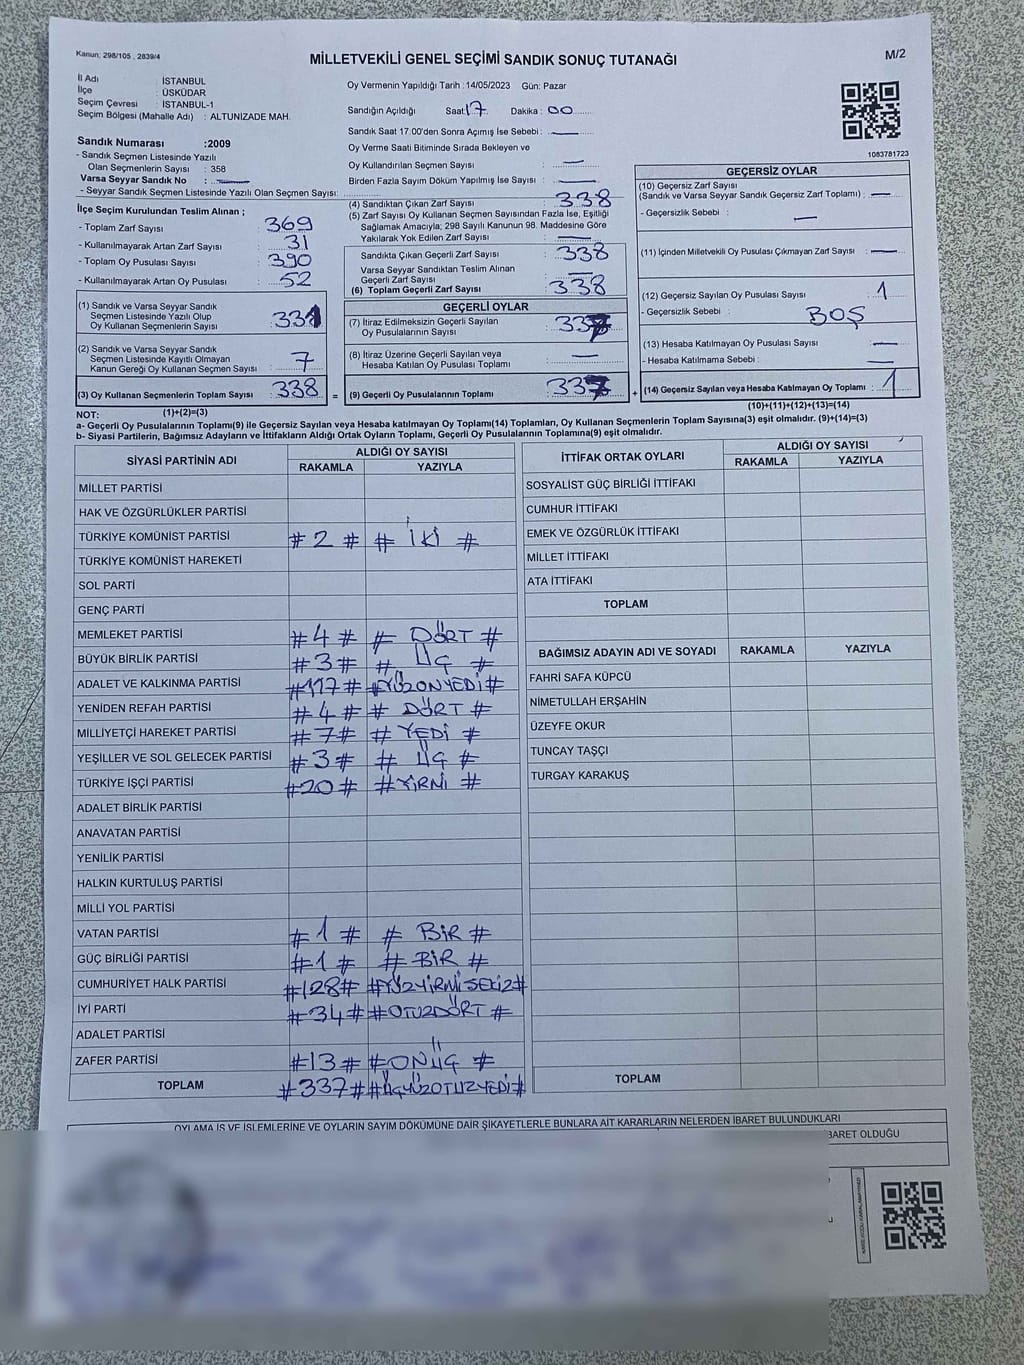 Kanun: 298/105 , 2839/4
MİLLETVEKİLİ GENEL SEÇİMİ SANDIK SONUÇ TUTANAĞI
M/2
İl Adı : İSTANBUL
İlçe : ÜSKÜDAR
Seçim Çevresi : İSTANBUL-1
Seçim Bölgesi (Mahalle Adı) : ALTUNİZADE MAH.
Sandık Numarası :2009
- Sandık Seçmen Listesinde Yazılı
Olan Seçmenlerin Sayısı : 358
Varsa Seyyar Sandık No : —
- Seyyar Sandık Seçmen Listesinde Yazılı Olan Seçmen Sayısı:
Oy Vermenin Yapıldığı Tarih :14/05/2023 Gün: Pazar
Sandığın Açıldığı Saat: 17 Dakika : 00
Sandık Saat 17.00'den Sonra Açımış İse Sebebi : —
Oy Verme Saati Bitiminde Sırada Bekleyen ve
Oy Kullandırılan Seçmen Sayısı : —
Birden Fazla Sayım Döküm Yapılmış İse Sayısı : —
1083781723
İlçe Seçim Kurulundan Teslim Alınan ;
- Toplam Zarf Sayısı : 369
- Kullanılmayarak Artan Zarf Sayısı : 31
- Toplam Oy Pusulası Sayısı : 390
- Kullanılmayarak Artan Oy Pusulası : 52
(1) Sandık ve Varsa Seyyar Sandık
Seçmen Listesinde Yazılı Olup
Oy Kullanan Seçmenlerin Sayısı : 331
(2) Sandık ve Varsa Seyyar Sandık
Seçmen Listesinde Kayıtlı Olmayan
Kanun Gereği Oy Kullanan Seçmen Sayısı : 7
(3) Oy Kullanan Seçmenlerin Toplam Sayısı : 338
(1)+(2)=(3)
(4) Sandıktan Çıkan Zarf Sayısı : 338
(5) Zarf Sayısı Oy Kullanan Seçmen Sayısından Fazla İse, Eşitliği
Sağlamak Amacıyla; 298 Sayılı Kanunun 98. Maddesine Göre
Yakılarak Yok Edilen Zarf Sayısı : —
Sandıkta Çıkan Geçerli Zarf Sayısı : 338
Varsa Seyyar Sandıktan Teslim Alınan
Geçerli Zarf Sayısı : —
(6) Toplam Geçerli Zarf Sayısı : 338
GEÇERLİ OYLAR
(7) İtiraz Edilmeksizin Geçerli Sayılan
Oy Pusulalarının Sayısı : 337
(8) İtiraz Üzerine Geçerli Sayılan veya
Hesaba Katılan Oy Pusulası Toplamı : —
= (9) Geçerli Oy Pusulalarının Toplamı : 337
GEÇERSİZ OYLAR
(10) Geçersiz Zarf Sayısı
(Sandık ve Varsa Seyyar Sandık Geçersiz Zarf Toplamı) : —
- Geçersizlik Sebebi : —
(11) İçinden Milletvekili Oy Pusulası Çıkmayan Zarf Sayısı : —
(12) Geçersiz Sayılan Oy Pusulası Sayısı : 1
- Geçersizlik Sebebi : BOŞ
(13) Hesaba Katılmayan Oy Pusulası Sayısı : —
- Hesaba Katılmama Sebebi : —
+ (14) Geçersiz Sayılan veya Hesaba Katılmayan Oy Toplamı : 1
(10)+(11)+(12)+(13)=(14)
NOT:
a- Geçerli Oy Pusulalarının Toplamı(9) ile Geçersiz Sayılan veya Hesaba katılmayan Oy Toplamı(14) Toplamları, Oy Kullanan Seçmenlerin Toplam Sayısına(3) eşit olmalıdır. (9)+(14)=(3)
b- Siyasi Partilerin, Bağımsız Adayların ve İttifakların Aldığı Ortak Oyların Toplamı, Geçerli Oy Pusulalarının Toplamına(9) eşit olmalıdır.
SİYASİ PARTİNİN ADI ALDIĞI OY SAYISI
RAKAMLA YAZIYLA
MİLLET PARTİSİ
HAK VE ÖZGÜRLÜKLER PARTİSİ
TÜRKİYE KOMÜNİST PARTİSİ # 2 # # İKİ #
TÜRKİYE KOMÜNİST HAREKETİ
SOL PARTİ
GENÇ PARTİ
MEMLEKET PARTİSİ #4# # DÖRT #
BÜYÜK BİRLİK PARTİSİ #3# # ÜÇ #
ADALET VE KALKINMA PARTİSİ #117# #YÜZONYEDİ#
YENİDEN REFAH PARTİSİ #4# # DÖRT #
MİLLİYETÇİ HAREKET PARTİSİ #7# # YEDİ #
YEŞİLLER VE SOL GELECEK PARTİSİ #3# # ÜÇ #
TÜRKİYE İŞÇİ PARTİSİ #20# #YİRMİ #
ADALET BİRLİK PARTİSİ
ANAVATAN PARTİSİ
YENİLİK PARTİSİ
HALKIN KURTULUŞ PARTİSİ
MİLLİ YOL PARTİSİ
VATAN PARTİSİ #1# # BİR #
GÜÇ BİRLİĞİ PARTİSİ #1# # BİR #
CUMHURİYET HALK PARTİSİ #128# #YÜZYİRMİSEKİZ#
İYİ PARTİ #34# #OTUZDÖRT #
ADALET PARTİSİ
ZAFER PARTİSİ #13# #ONÜÇ #
TOPLAM #337# #ÜÇYÜZOTUZYEDİ#
İTTİFAK ORTAK OYLARI ALDIĞI OY SAYISI
RAKAMLA YAZIYLA
SOSYALİST GÜÇ BİRLİĞİ İTTİFAKI
CUMHUR İTTİFAKI
EMEK VE ÖZGÜRLÜK İTTİFAKI
MİLLET İTTİFAKI
ATA İTTİFAKI
TOPLAM
BAĞIMSIZ ADAYIN ADI VE SOYADI RAKAMLA YAZIYLA
FAHRİ SAFA KÜPCÜ
NİMETULLAH ERŞAHİN
ÜZEYFE OKUR
TUNCAY TAŞÇI
TURGAY KARAKUŞ
TOPLAM
OYLAMA İŞ VE İŞLEMLERİNE VE OYLARIN SAYIM DÖKÜMÜNE DAİR ŞİKAYETLERLE BUNLARA AİT KARARLARIN NELERDEN İBARET BULUNDUKLARI
BARET OLDUĞU